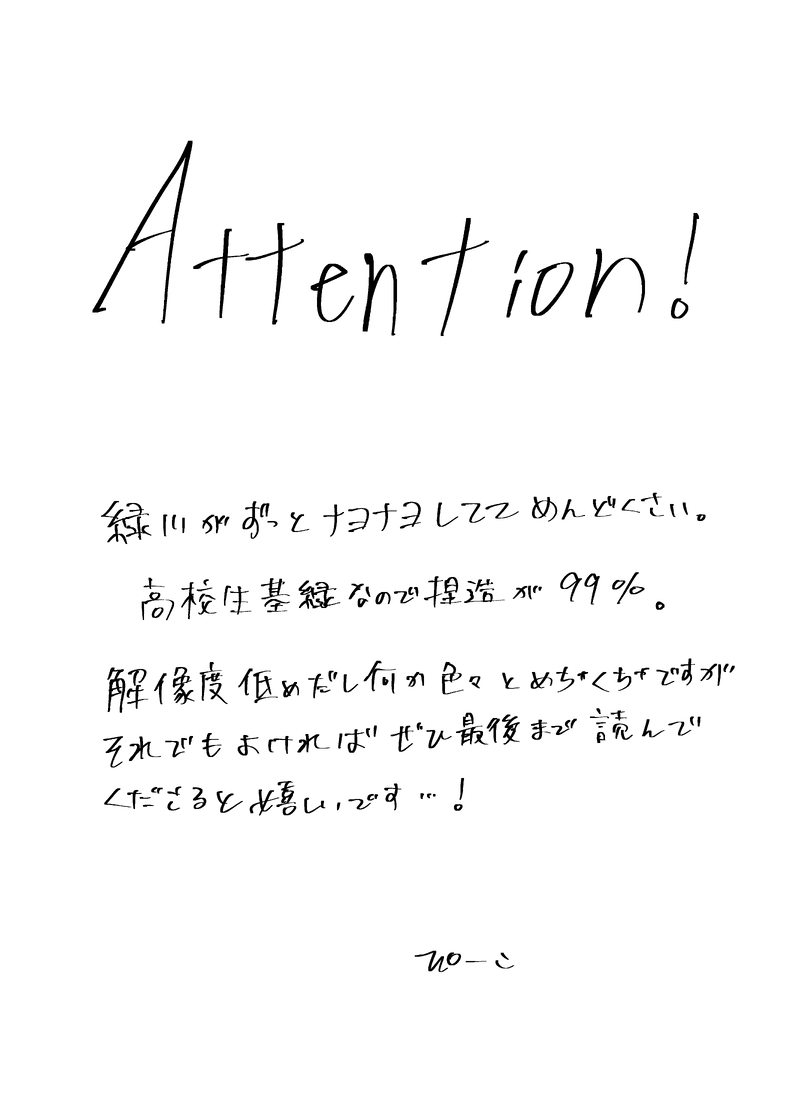 Attention!
緑川がずっとナヨナヨしてて めんどくさい。
高校生基緑なので捏造が99%。
解像度低めだし何か色々とめちゃくちゃですが
それでもよければ ぜひ最後まで読んで
くださると嬉しいです…!
ぴーこ